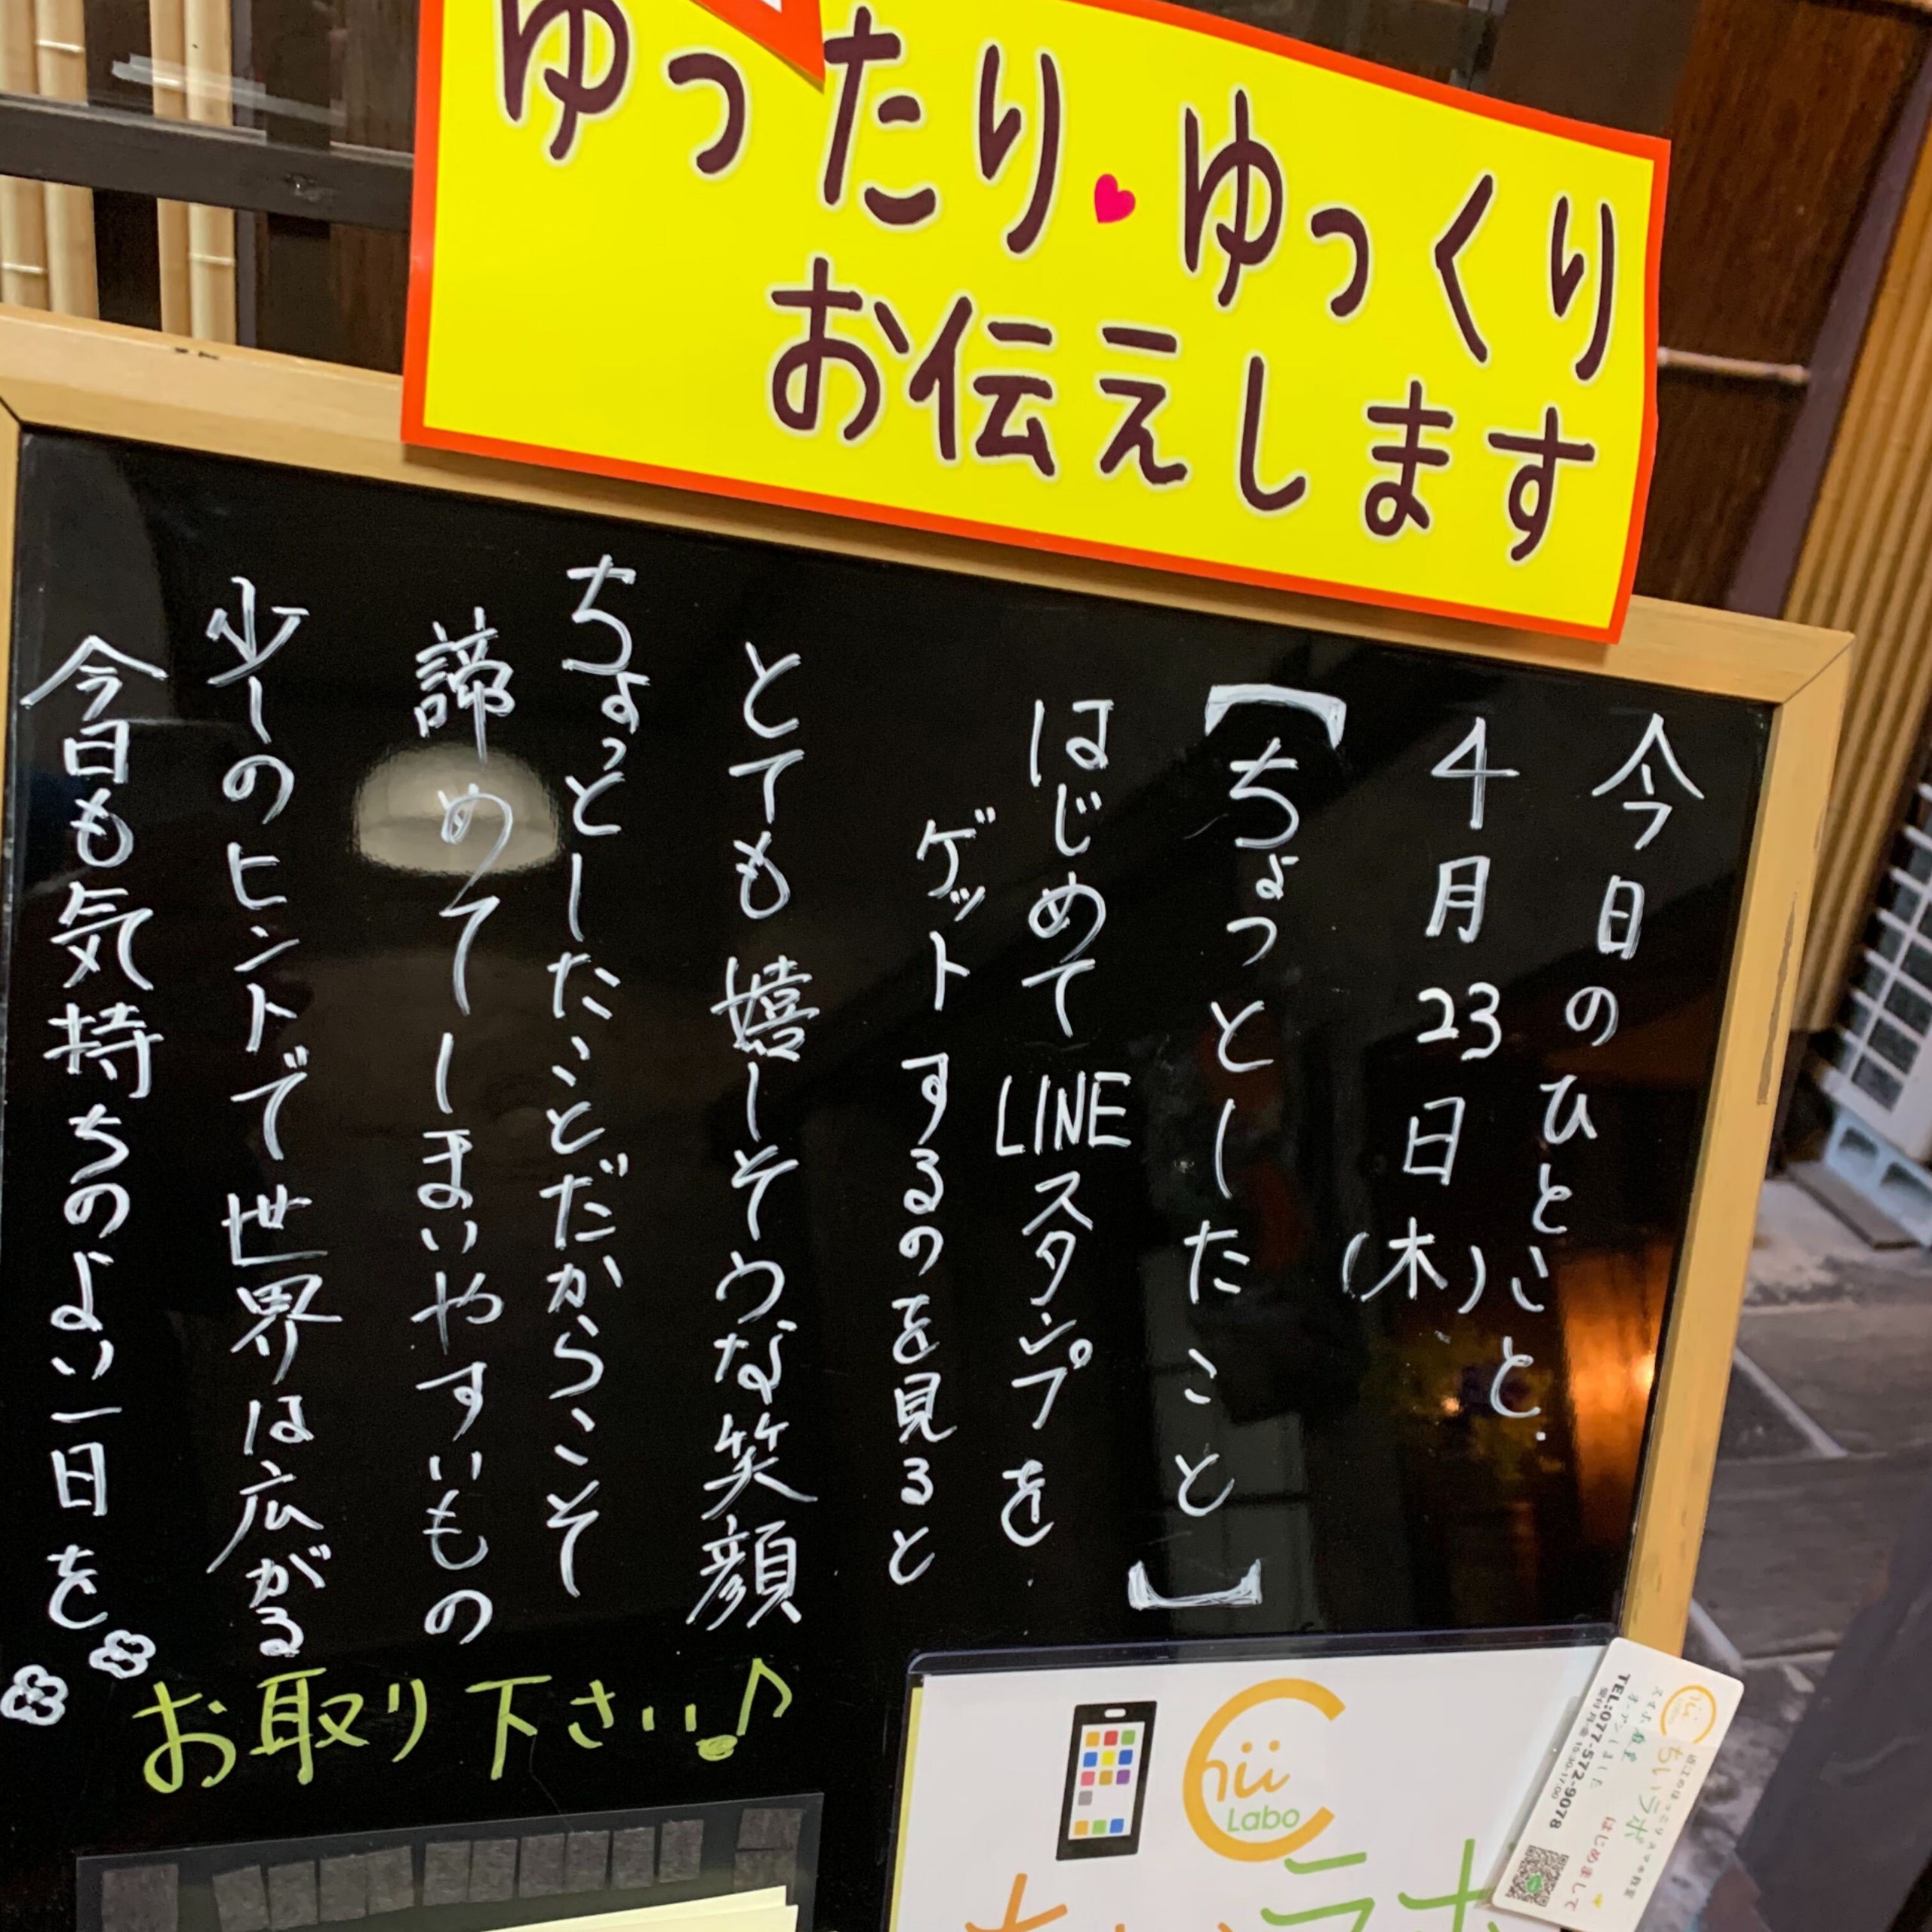 ゆったり・ゆっくり
お伝えします
今日のひとこと.
4月23日(木)
【ちょっとしたこと】
はじめてLINEスタンプを
ゲットするのを見ると
とても嬉しそうな笑顔
ちょっとしたことだからこそ
諦めてしまいやすいもの
少しのヒントで世界は広がる
今日も気持ちのよい一日を
お取り下さい♪
Chii
Labo
ちいラボ
はじめまして
TEL:077-572-9078